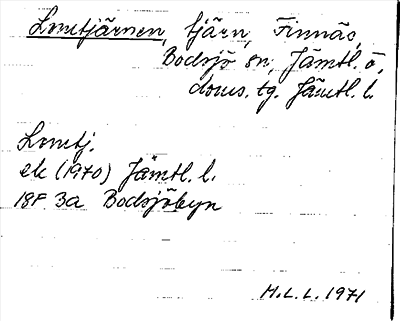 Lomtjärnen, tjärn, Finnäs,
Bodsjö sn, Jämtl. ö.
doms. tg. Jämtl. l.
Lomtj.
ek (1970) Jämtl. l.
18F 3a Bodsjöbyn
M.L.L. 1971